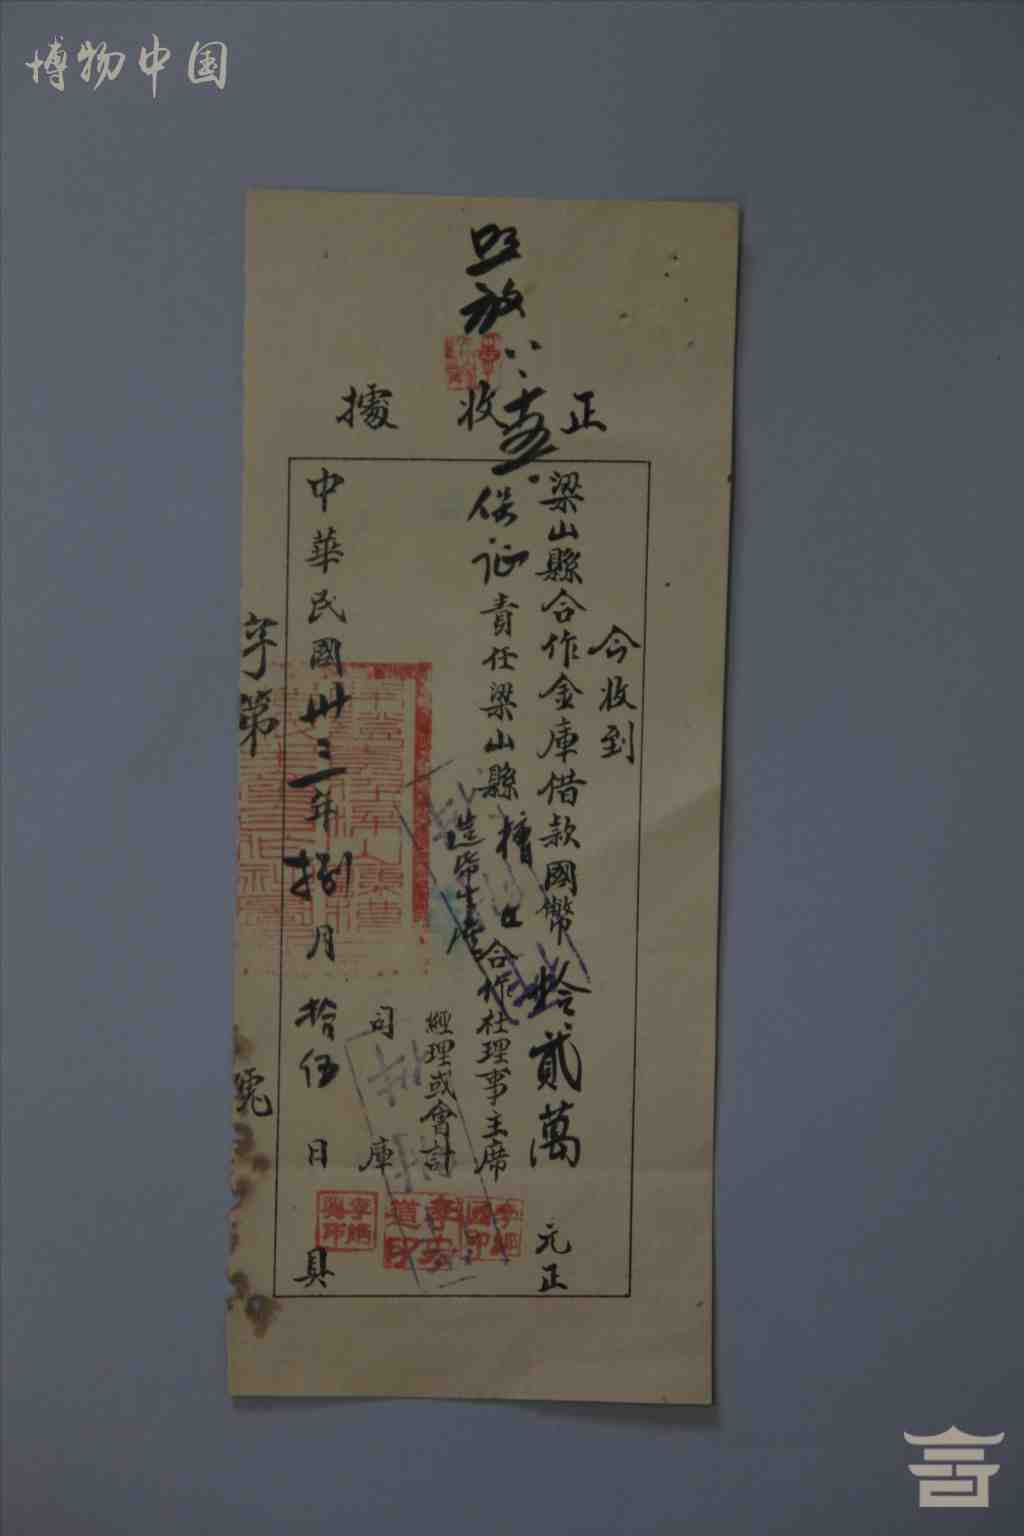 博物中国
照放
八、十五
正收據
今收到
梁山縣合作金庫借款國幣拾貳萬元正
保证責任梁山縣檜口造紙生產合作社理事主席
經理或會計
司庫
中華民國卅三年捌月拾伍日具
字第號